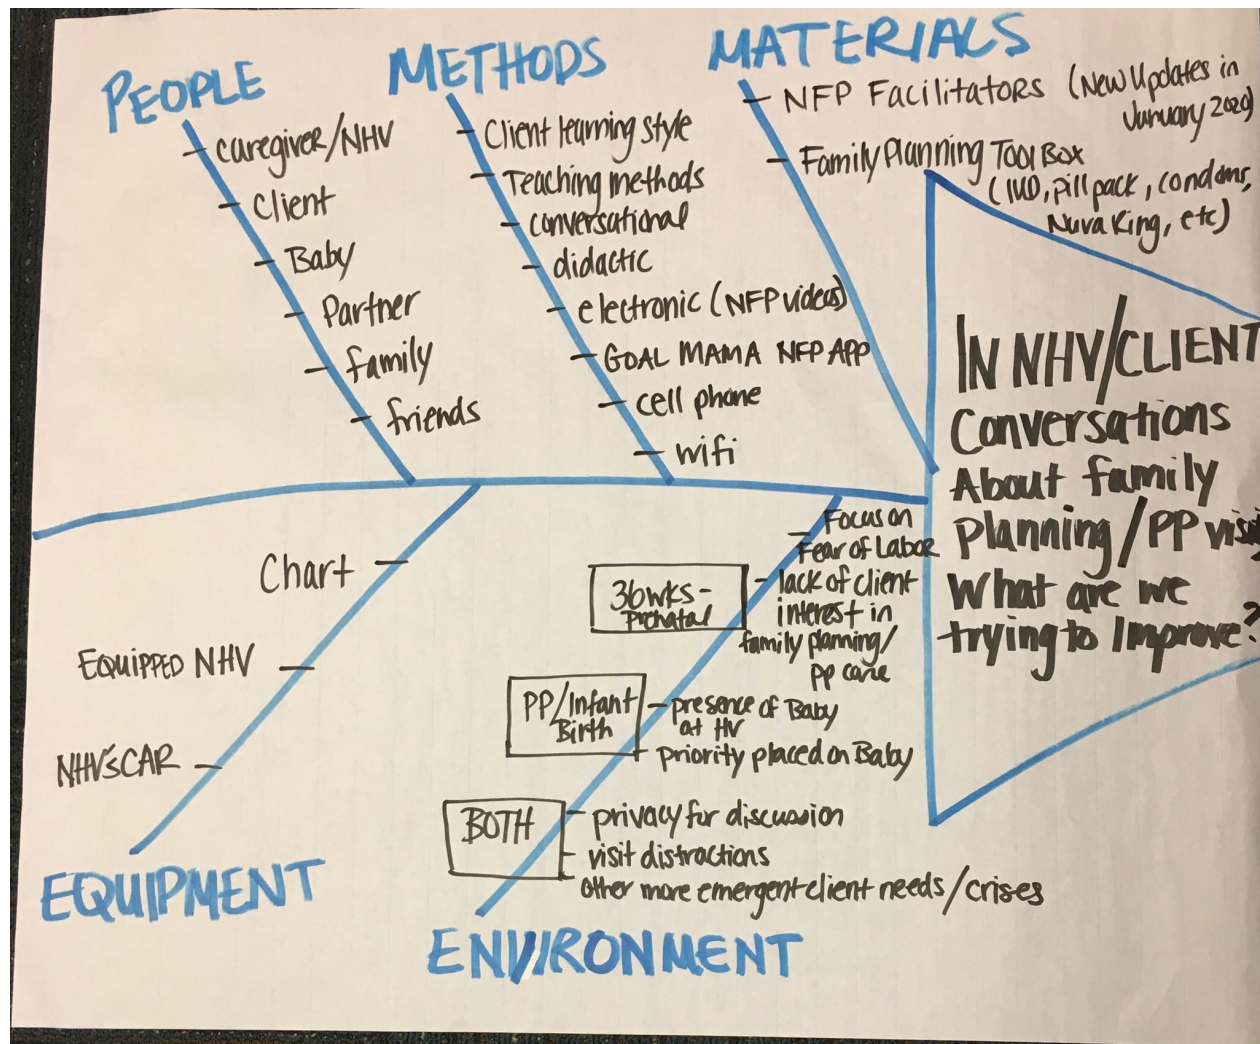 PEOPLE
caregiver/NHV
Client
Baby
Partner
family
friends
METHODS
Client learning style
Teaching methods
conversational
didactic
electronic (NFP videos)
GOAL MAMA NFP APP
cell phone
wifi
MATERIALS
NFP FACILITATORS (New Updates in
January 2020)
Family Planning TOOL BOX
(IUD, pill pack, condoms,
Nuva Ring, etc)
IN NHV/CLIENT
Conversations
About family
planning/PP visit
What are we
trying to Improve?
Chart
EQUIPPED NHV
NHV'S CAR
EQUIPMENT
Focus on
Fear of Labor
36wks-
Prenatal
lack of client
interest in
family planning/
pp care
PP/Infant
Birth
presence of Baby
at HV
priority placed on Baby
BOTH
privacy for discussion
visit distractions
other more emergent client needs/crises
ENVIRONMENT